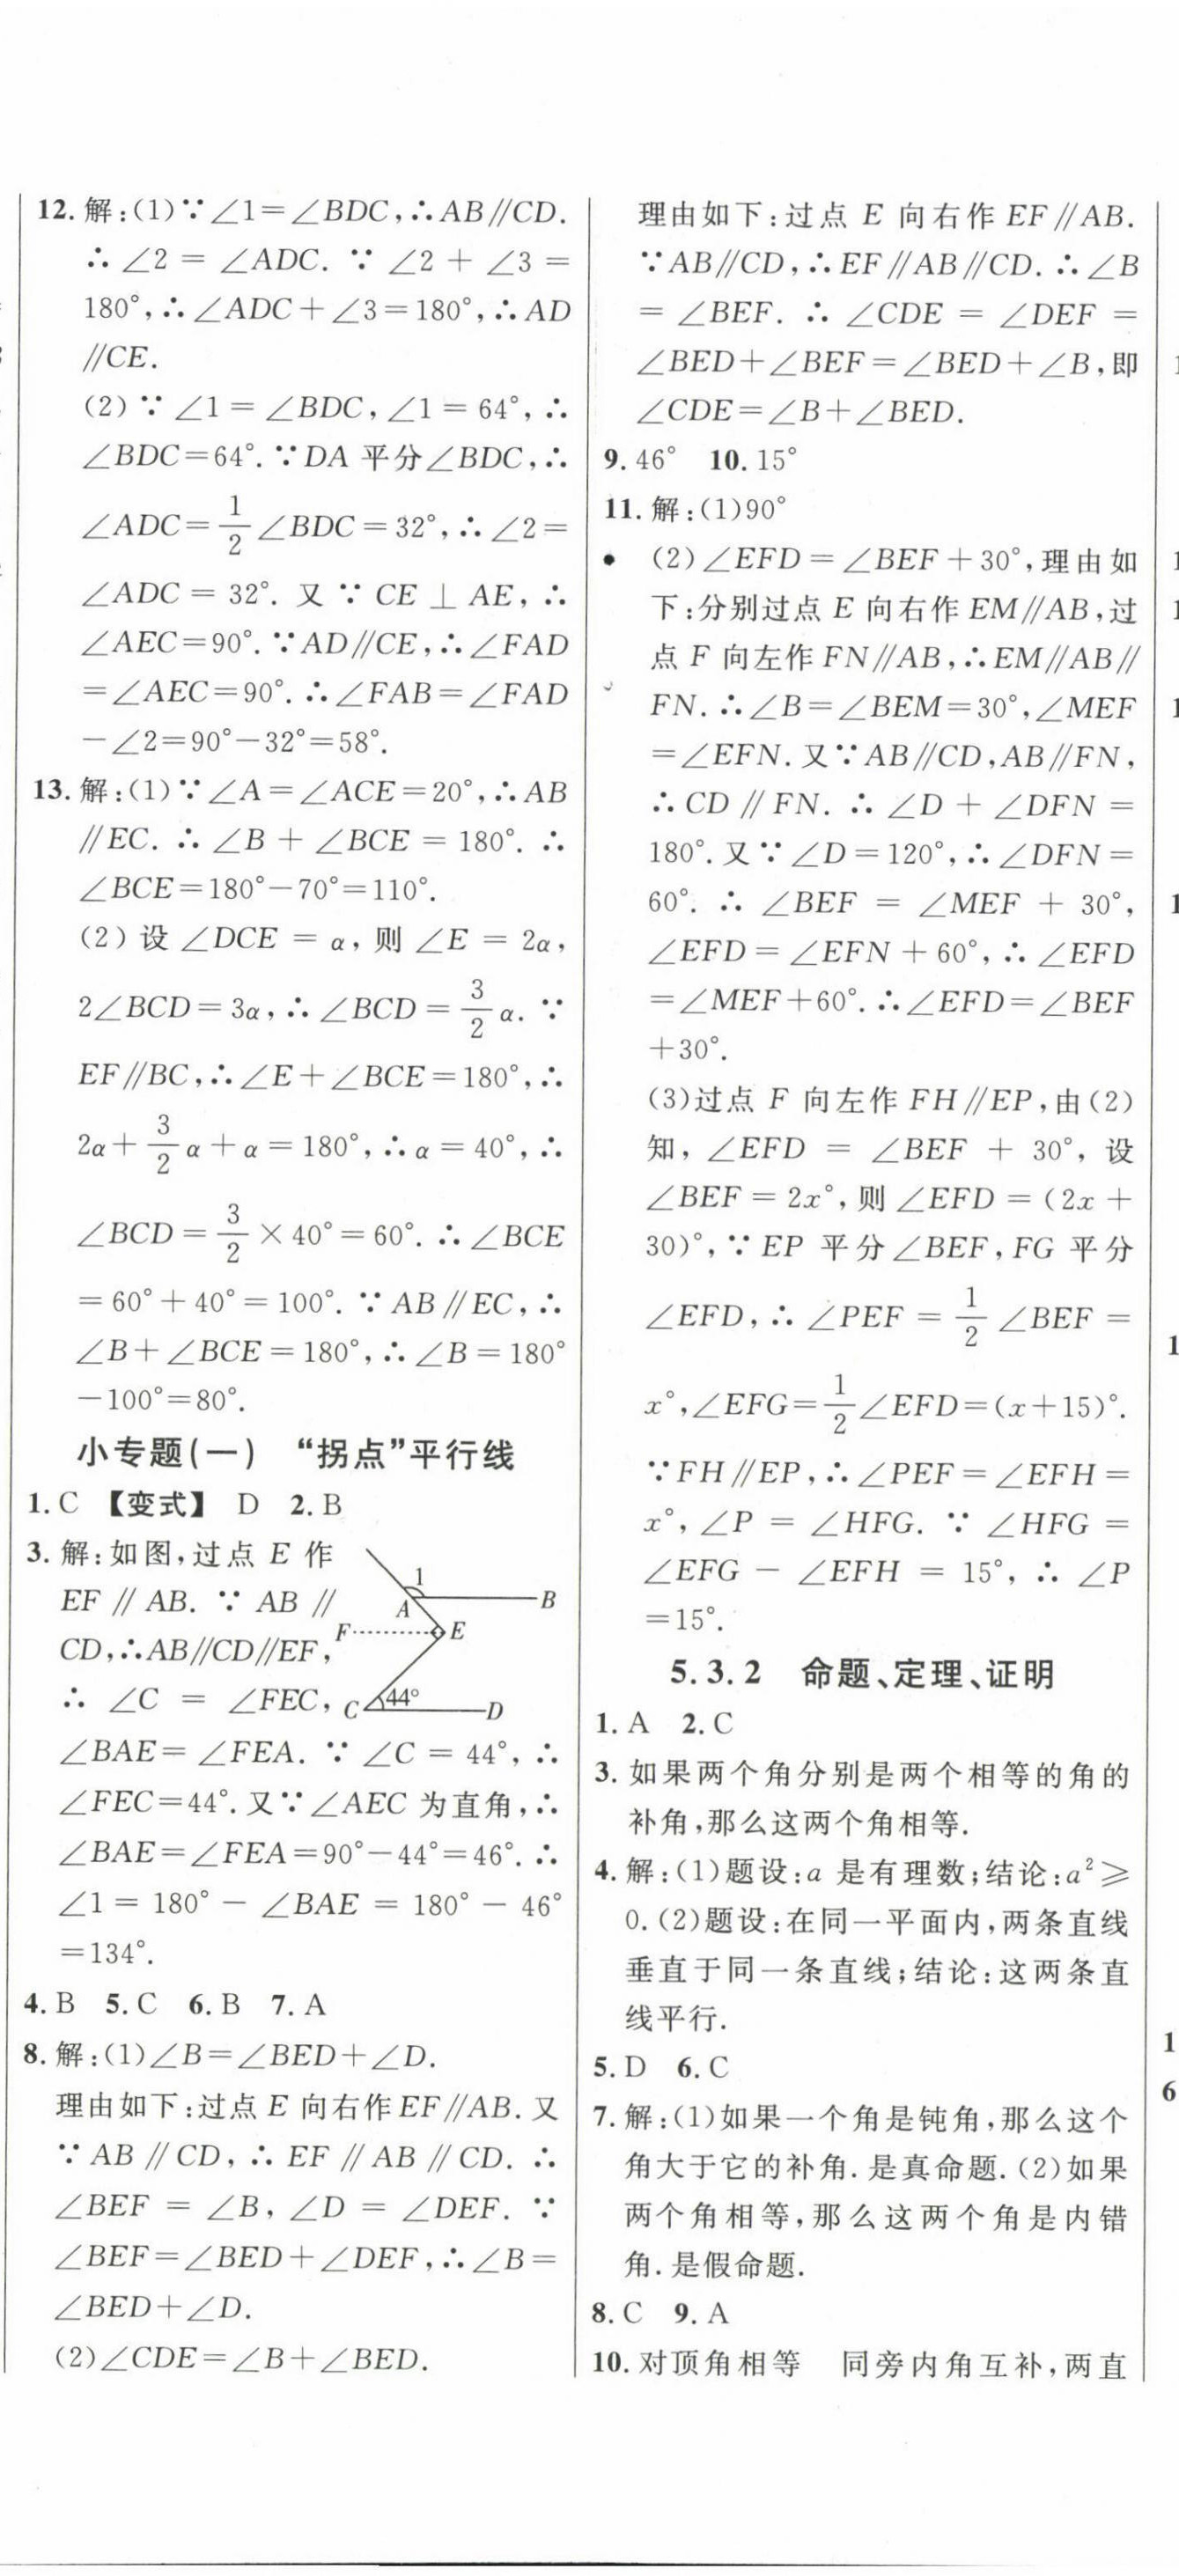 12. 解:(1)∵∠1=∠BDC,∴AB∥CD.
∴ ∠2 = ∠ADC. ∵ ∠2 + ∠3 =
180°,∴∠ADC+∠3=180°,∴AD
∥CE.
(2) ∵ ∠1 = ∠BDC, ∠1 = 64°, ∴
∠BDC=64°. ∵DA 平分∠BDC,∴
∠ADC=1/2∠BDC=32°,∴∠2=
∠ADC = 32°. 又 ∵ CE ⊥ AE, ∴
∠AEC=90°. ∵AD∥CE,∴∠FAD
=∠AEC=90°. ∴∠FAB=∠FAD
-∠2=90°-32°=58°.
13. 解:(1)∵∠A=∠ACE=20°,∴AB
∥EC. ∴ ∠B + ∠BCE = 180°. ∴
∠BCE=180°-70°=110°.
(2) 设 ∠DCE = α, 则 ∠E = 2α,
2∠BCD=3α,∴∠BCD=3/2α. ∵
EF∥BC,∴∠E+∠BCE=180°,∴
2α+3/2α+α=180°,∴α=40°,∴
∠BCD=3/2×40°=60°. ∴∠BCE
=60°+40°=100°. ∵AB∥EC,∴
∠B+∠BCE=180°,∴∠B=180°
-100°=80°.
小专题(一) “拐点”平行线
1. C 【变式】 D 2. B
3. 解:如图,过点 E 作
EF ∥ AB. ∵ AB ∥
CD,∴AB∥CD∥EF,
∴ ∠C = ∠FEC,
1
A
B
F
E
C
44°
D
∠BAE= ∠FEA. ∵ ∠C = 44°, ∴
∠FEC=44°. 又∵∠AEC 为直角,∴
∠BAE=∠FEA=90°-44°=46°. ∴
∠1 = 180° - ∠BAE = 180° - 46°
=134°.
4. B 5. C 6. B 7. A
8. 解:(1)∠B=∠BED+∠D.
理由如下:过点 E 向右作EF∥AB. 又
∵ AB ∥ CD, ∴ EF ∥ AB ∥ CD. ∴
∠BEF = ∠B, ∠D = ∠DEF. ∵
∠BEF=∠BED+∠DEF,∴∠B=
∠BED+∠D.
(2)∠CDE=∠B+∠BED.
理由如下:过点 E 向右作 EF∥AB.
∵AB∥CD,∴EF∥AB∥CD. ∴∠B
= ∠BEF. ∴ ∠CDE = ∠DEF =
∠BED+∠BEF=∠BED+∠B,即
∠CDE=∠B+∠BED.
9. 46° 10. 15°
11. 解:(1)90°
(2)∠EFD=∠BEF+30°,理由如
下:分别过点 E 向右作 EM∥AB,过
点 F 向左作 FN∥AB,∴EM∥AB∥
FN. ∴∠B=∠BEM=30°,∠MEF
=∠EFN. 又∵AB∥CD,AB∥FN,
∴CD ∥ FN. ∴ ∠D + ∠DFN =
180°. 又∵∠D=120°,∴∠DFN=
60°. ∴ ∠BEF = ∠MEF + 30°,
∠EFD=∠EFN+60°,∴∠EFD
=∠MEF+60°. ∴∠EFD=∠BEF
+30°.
(3)过点 F 向左作 FH∥EP,由(2)
知, ∠EFD = ∠BEF + 30°, 设
∠BEF=2x°,则∠EFD=(2x+
30)°,∵EP 平分∠BEF,FG 平分
∠EFD,∴∠PEF=1/2∠BEF=
x°,∠EFG=1/2∠EFD=(x+15)°.
∵FH∥EP,∴∠PEF=∠EFH=
x°, ∠P = ∠HFG. ∵ ∠HFG =
∠EFG - ∠EFH = 15°, ∴ ∠P
=15°.
5.3.2 命题、定理、证明
1. A 2. C
3. 如果两个角分别是两个相等的角的
补角,那么这两个角相等.
4. 解:(1)题设:a 是有理数;结论:a²≥
0. (2)题设:在同一平面内,两条直线
垂直于同一条直线;结论:这两条直
线平行.
5. D 6. C
7. 解:(1)如果一个角是钝角,那么这个
角大于它的补角. 是真命题. (2)如果
两个角相等,那么这两个角是内错
角. 是假命题.
8. C 9. A
10. 对顶角相等 同旁内角互补,两直